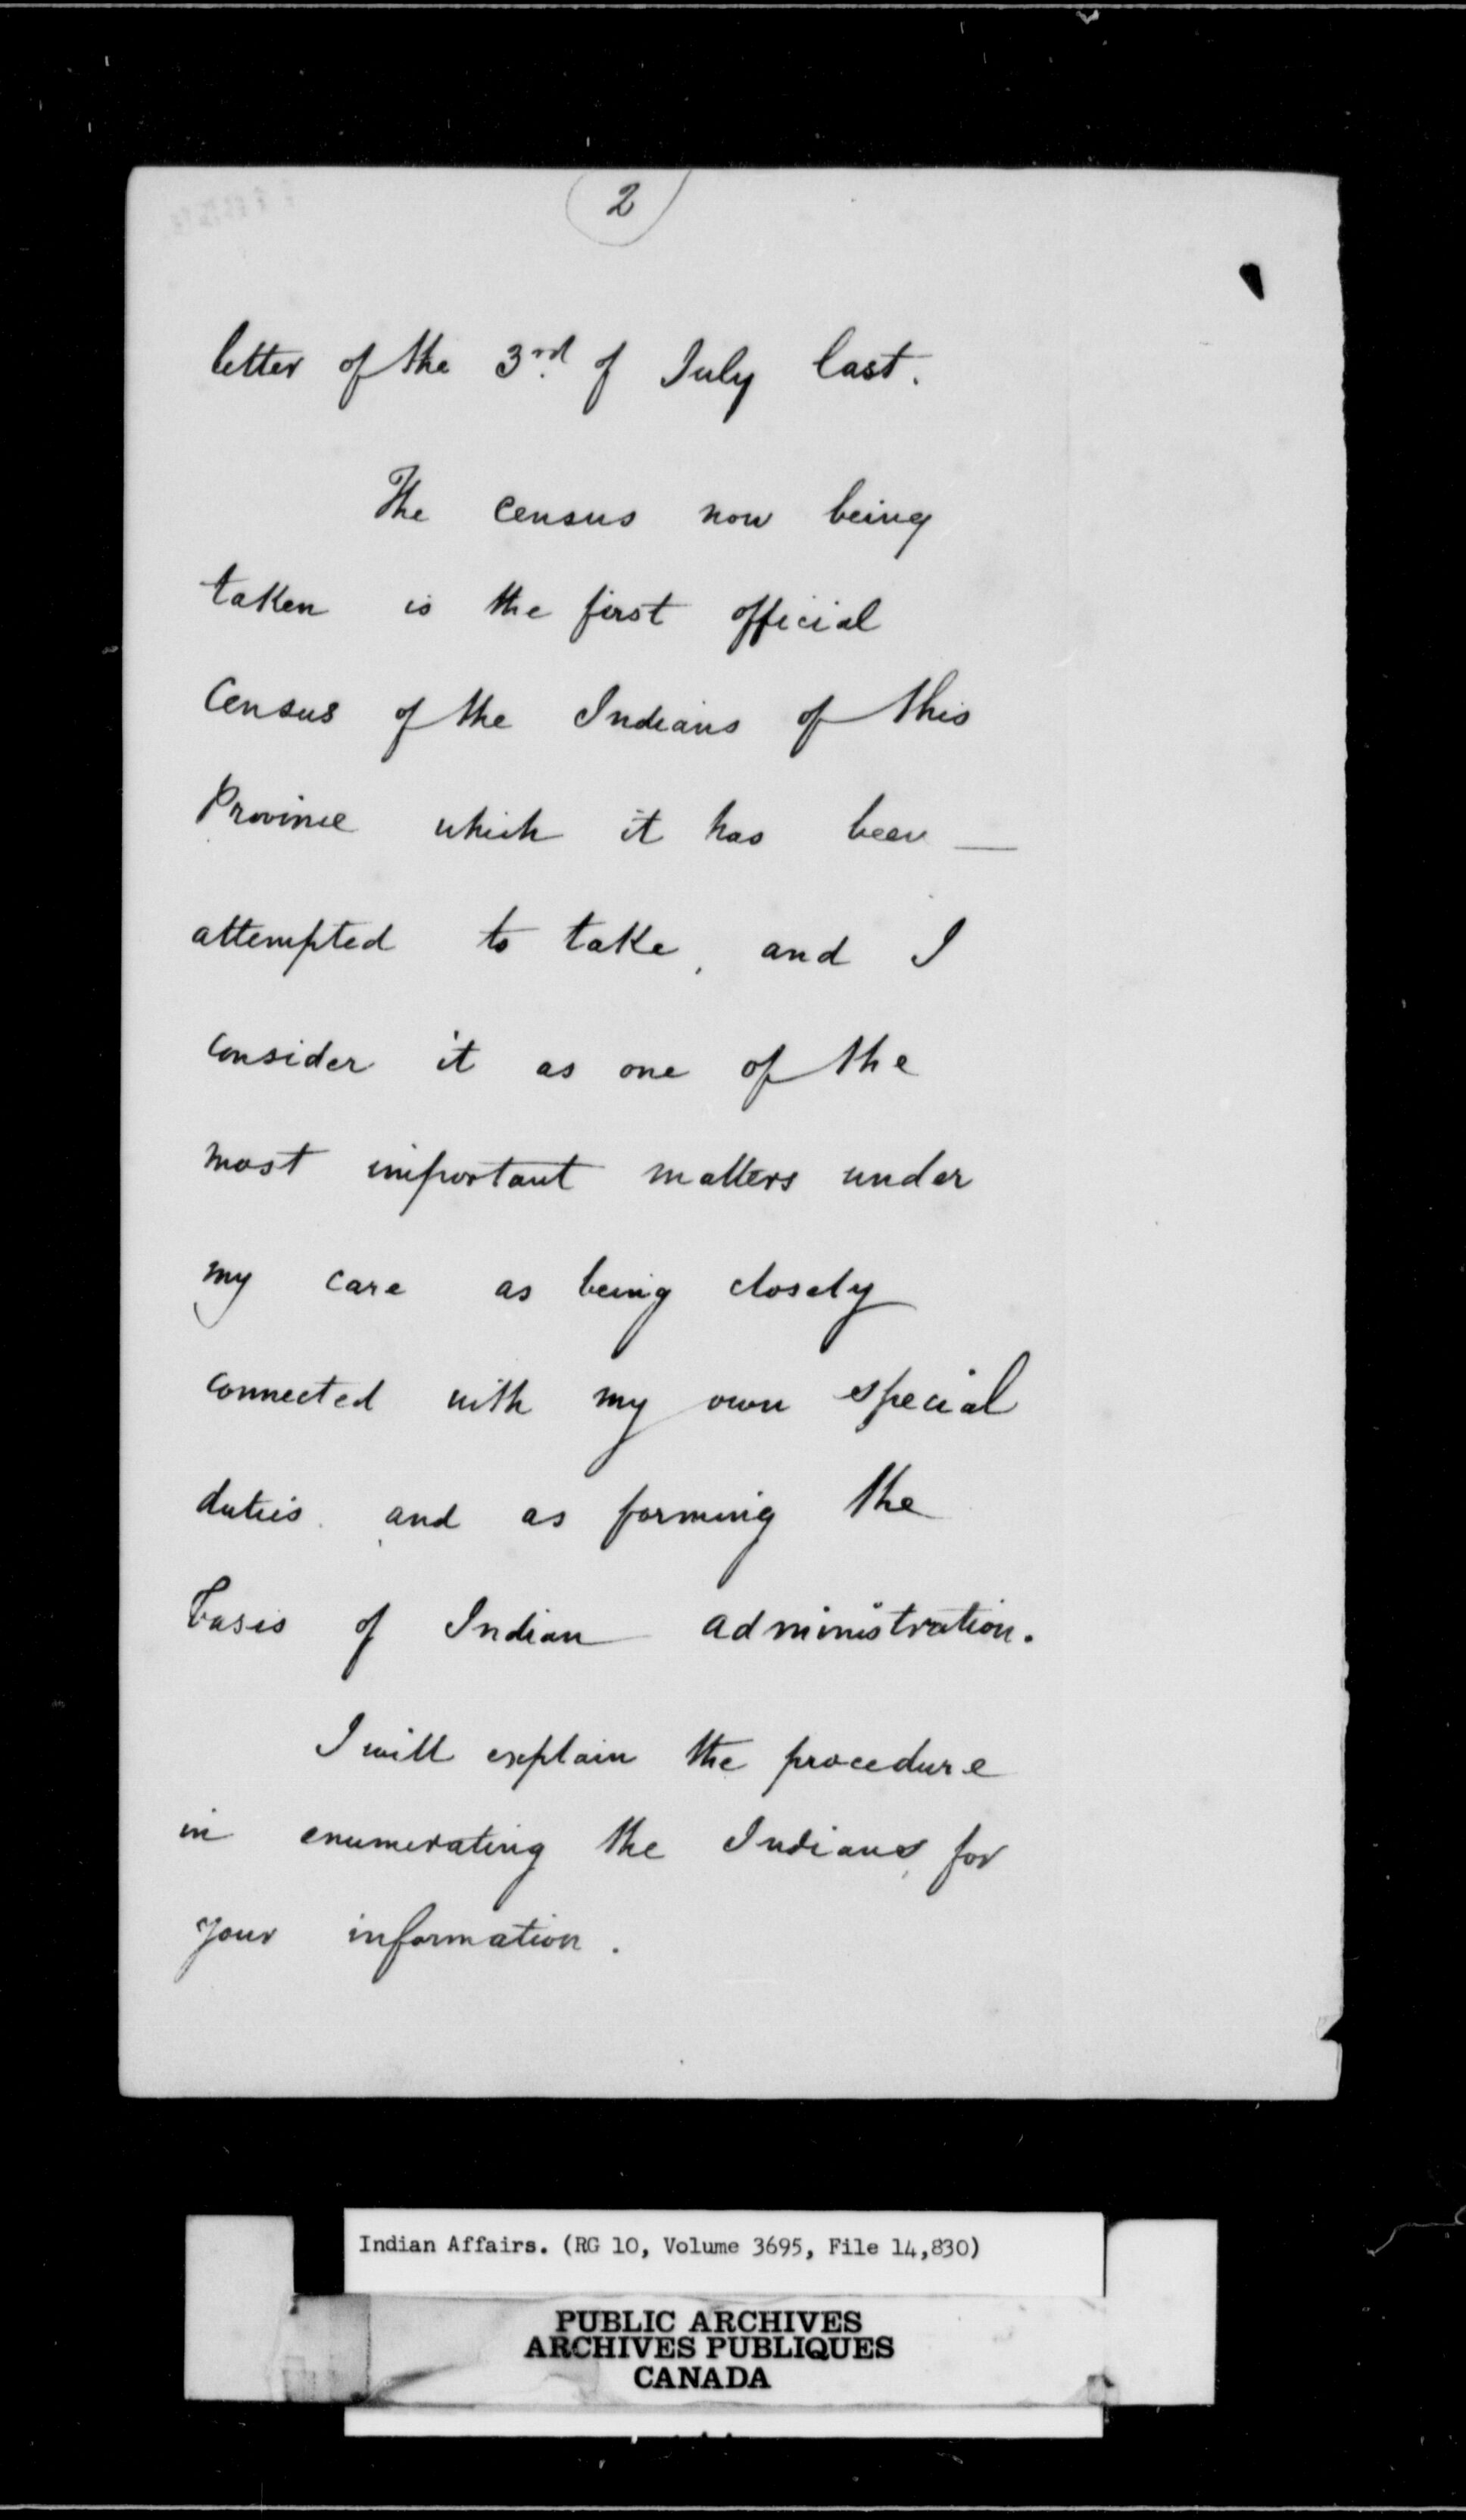 2
letter of the 3rd of July last.
The census now being
taken is the first official
Census of the Indians of this
Province which it has been —
attempted to take, and I
consider it as one of the
most important matters under
my care as being closely
connected with my own especial
duties, and as forming the
basis of Indian administration.
I will explain the procedure
in enumerating the Indians, for
your information.
Indian Affairs. (RG 10, Volume 3695, File 14,830)
PUBLIC ARCHIVES
ARCHIVES PUBLIQUES
CANADA